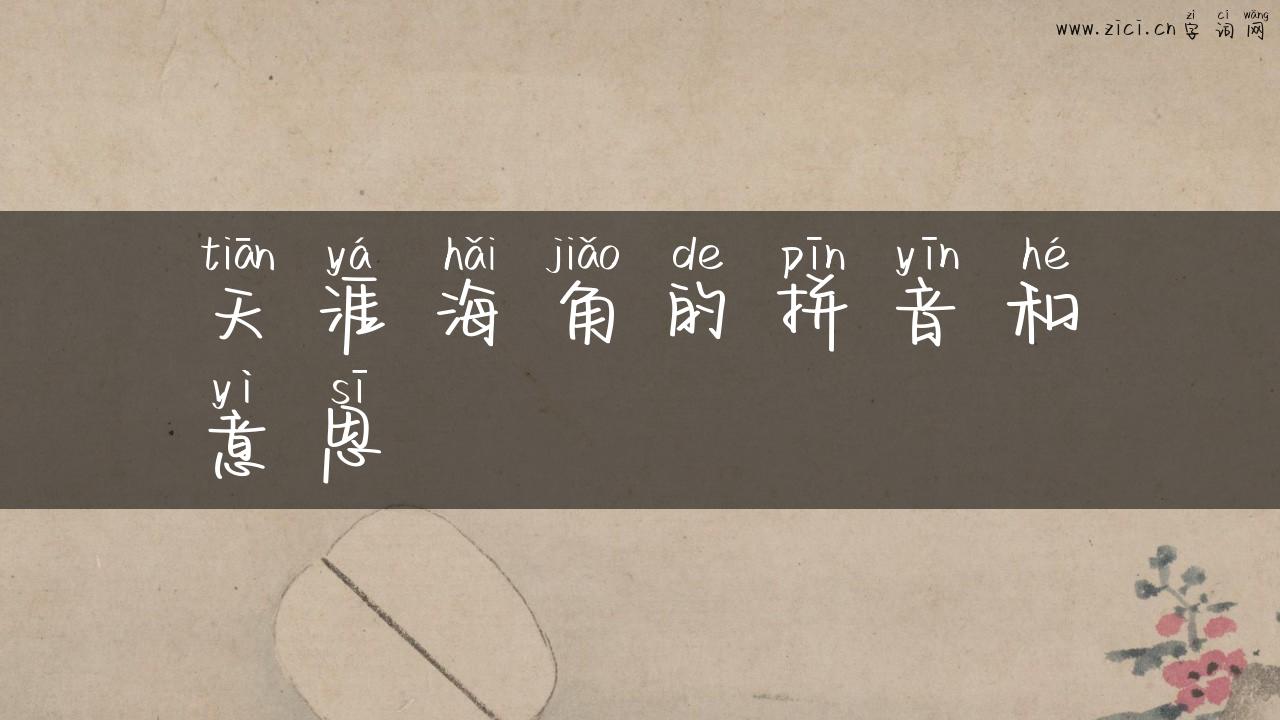 zì cí wǎng
www.zici.cn 字词网
tiān yá hǎi jiǎo de pīn yīn hé
天涯海角的拼音和
yì sī
意思